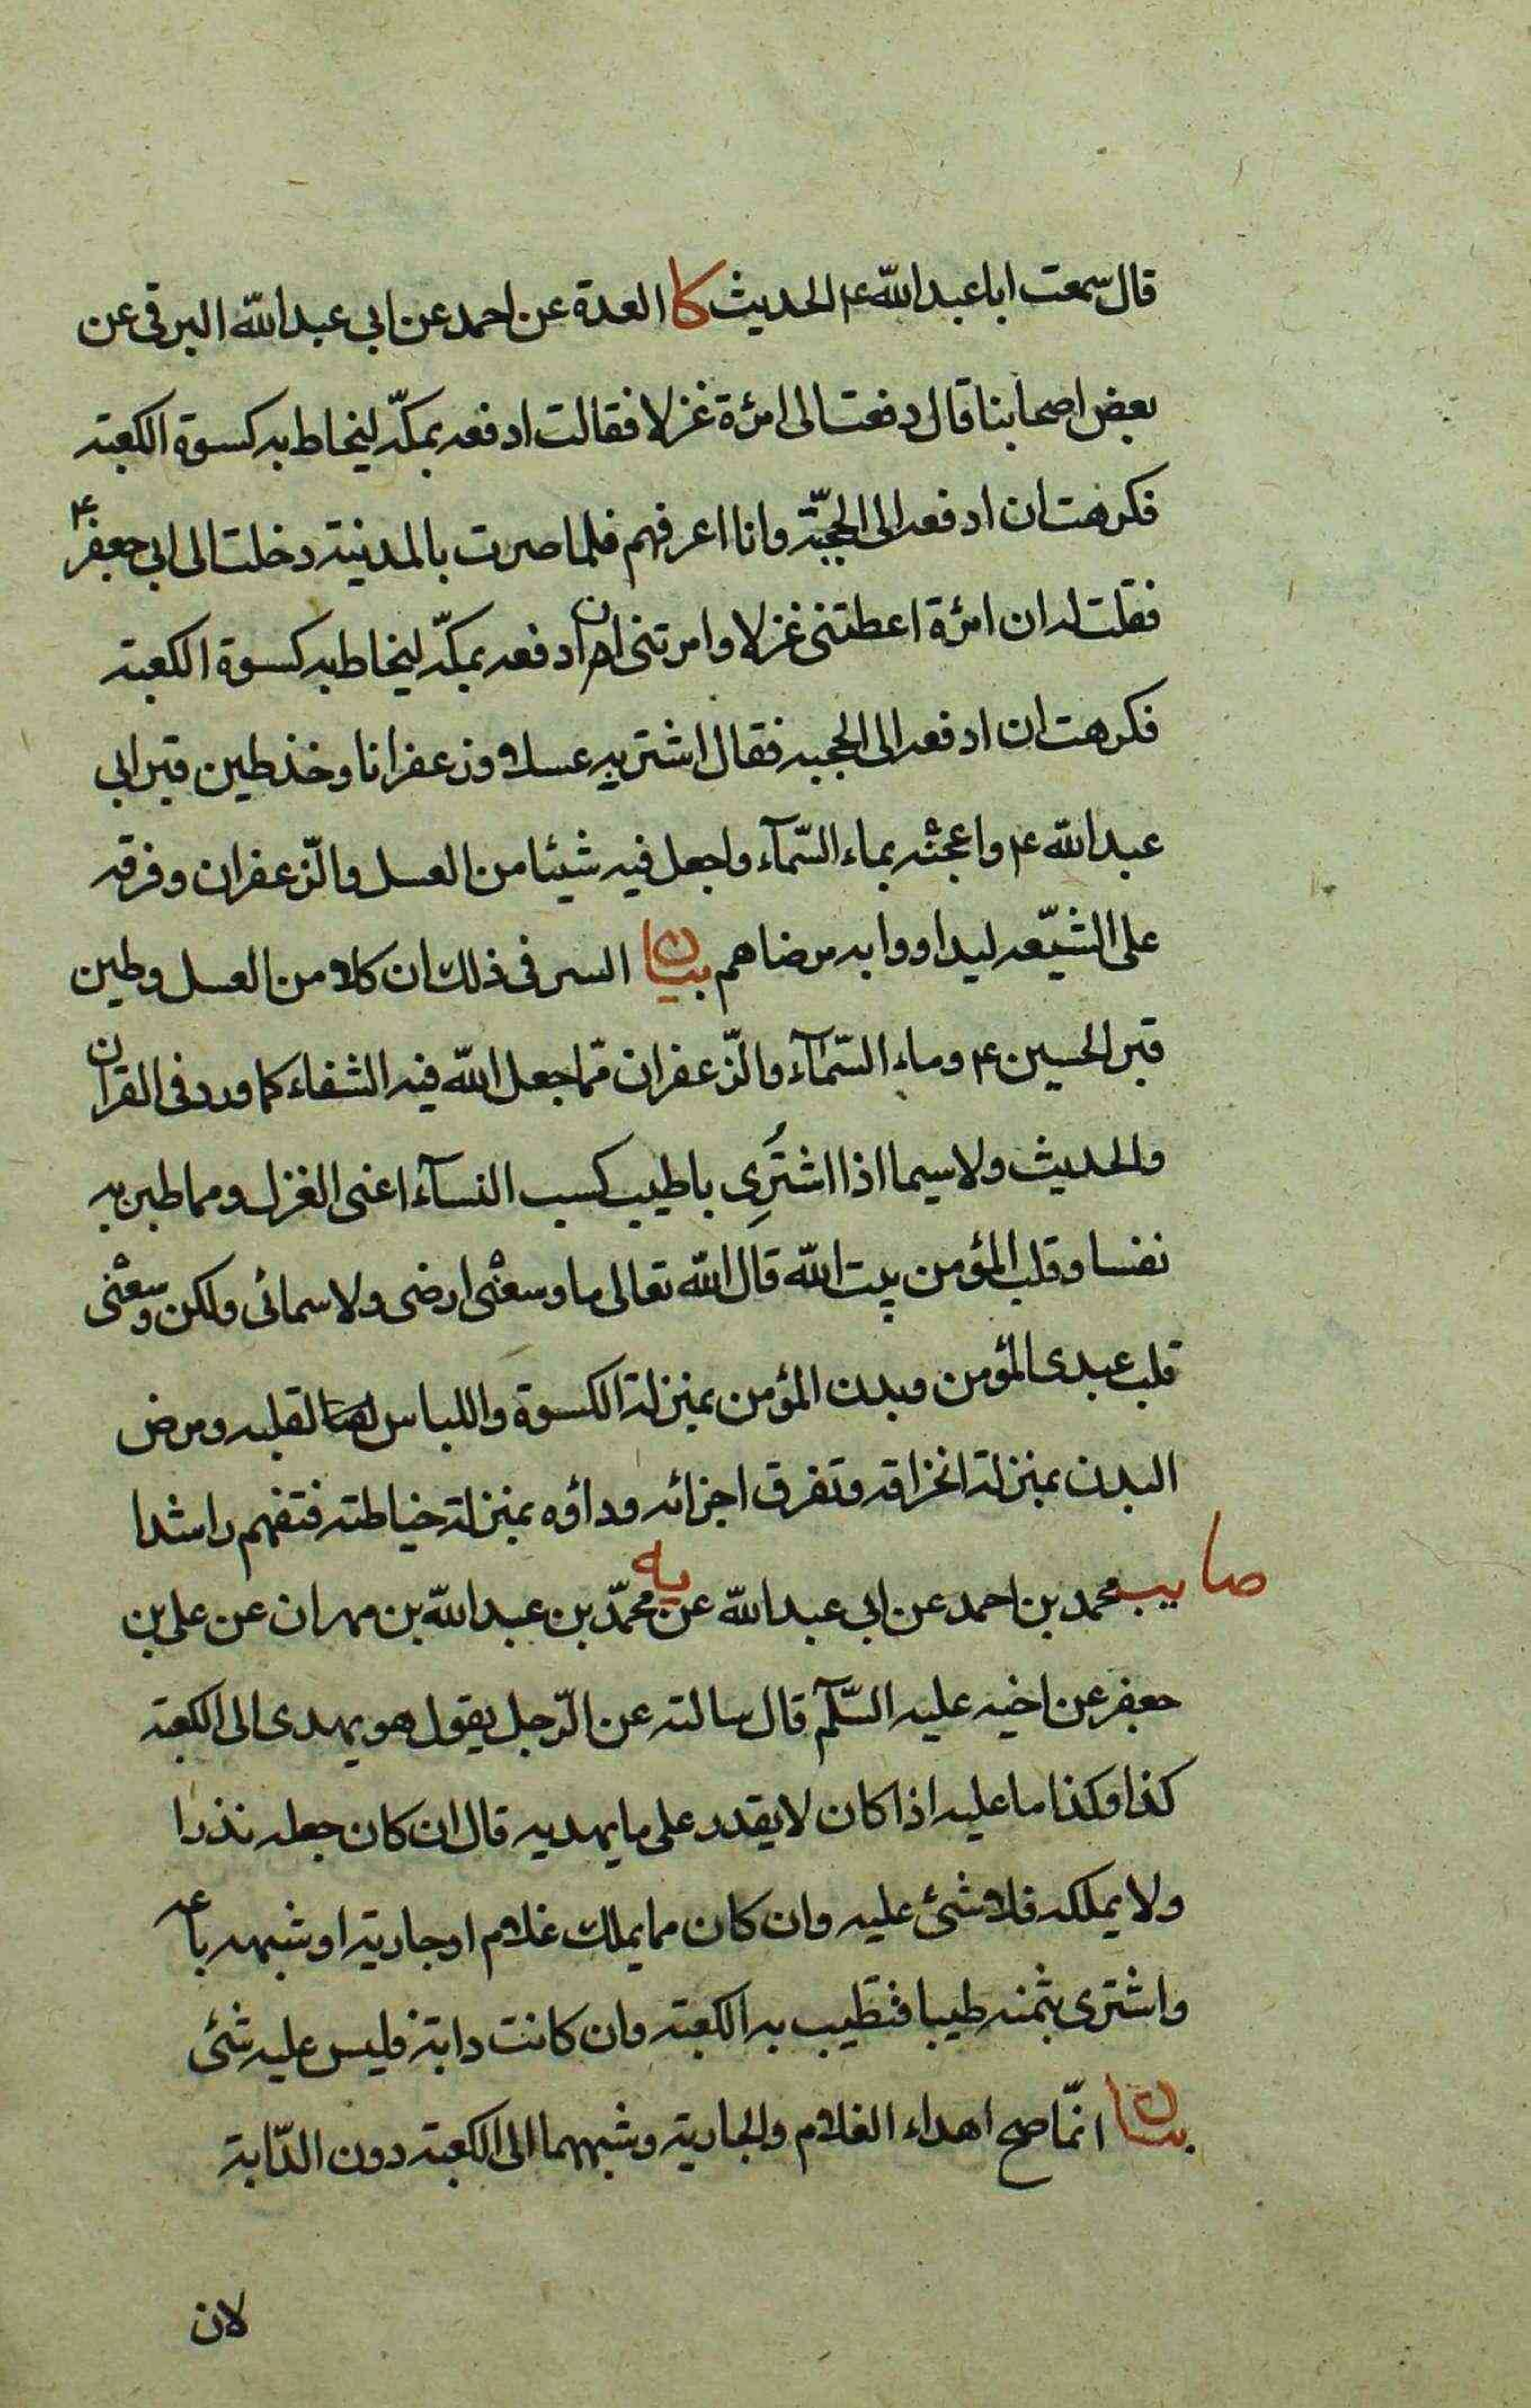 قال سمعت ابا عبد الله ع الحديث كا العدة عن احمد عن ابى عبد الله البرقى عن
بعض اصحابنا قال دفعت الى امرئة غزلا فقالت ادفعه بمكّة ليخاط به كسوة الكعبة
فكرهت ان ادفعه الى الحجبّة وانا اعرفهم فلما صرت بالمدينة دخلت الى ابى جعفر ع
فقلت له ان امرئة اعطتنى غزلا وامرتنى ان ادفعه بمكّة ليخاط به كسوة الكعبة
فكرهت ان ادفعه الى الحجبه فقال اشتر به عسلا وزعفرانا وخذ طين قبر ابى
عبد الله ع واعجنه بماء السّمآء واجعل فيه شيئا من العسل والزّعفران وفرقه
على الشيّعه ليداووا به مرضاهم بيان السر فى ذلك ان كلا من العسل وطين
قبر الحسين ع وماء السّمآء والزّعفران ممّا جعل الله فيه الشفاء كما ورد فى القران
والحديث ولا سيما اذا اشتُرِى باطيب كسب النسآء اعنى الغزل ومما طبن به
نفسا وقلب المؤمن بيت الله قال الله تعالى ما وسعنى ارضى ولا سمائى ولكن وسعنى
قلب عبدى المؤمن وبدن المؤمن بمنزلة الكسوة واللباس لقلبه ومرض
البدن بمنزلة انخراقه وتفرق اجزائه ودواؤه بمنزلة خياطته فتفهم راشدا
صا يب محمد بن احمد عن ابى عبد الله عن يه محمّد بن عبد الله بن مهران عن على بن
جعفر عن اخيه عليه السّلآم قال سالته عن الرّجل يقول هو يهدى الى الكعبة
كذا وكذا ما عليه اذا كان لا يقدر على ما يهديه قال ان كان جعله نذرا
ولا يملكه فلا شئ عليه وان كان مما يملك غلام او جارية او شبهه باعه
واشترى بثمنه طيبا فتطيب به الكعبة وان كانت دابة فليس عليه شئى
بيان انّما صح اهداء الغلام والجارية وشبههما الى الكعبة دون الدّابة
لان